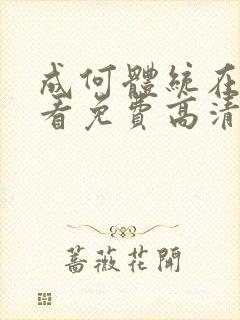 成何體統在
看免費高清
薔薇花開